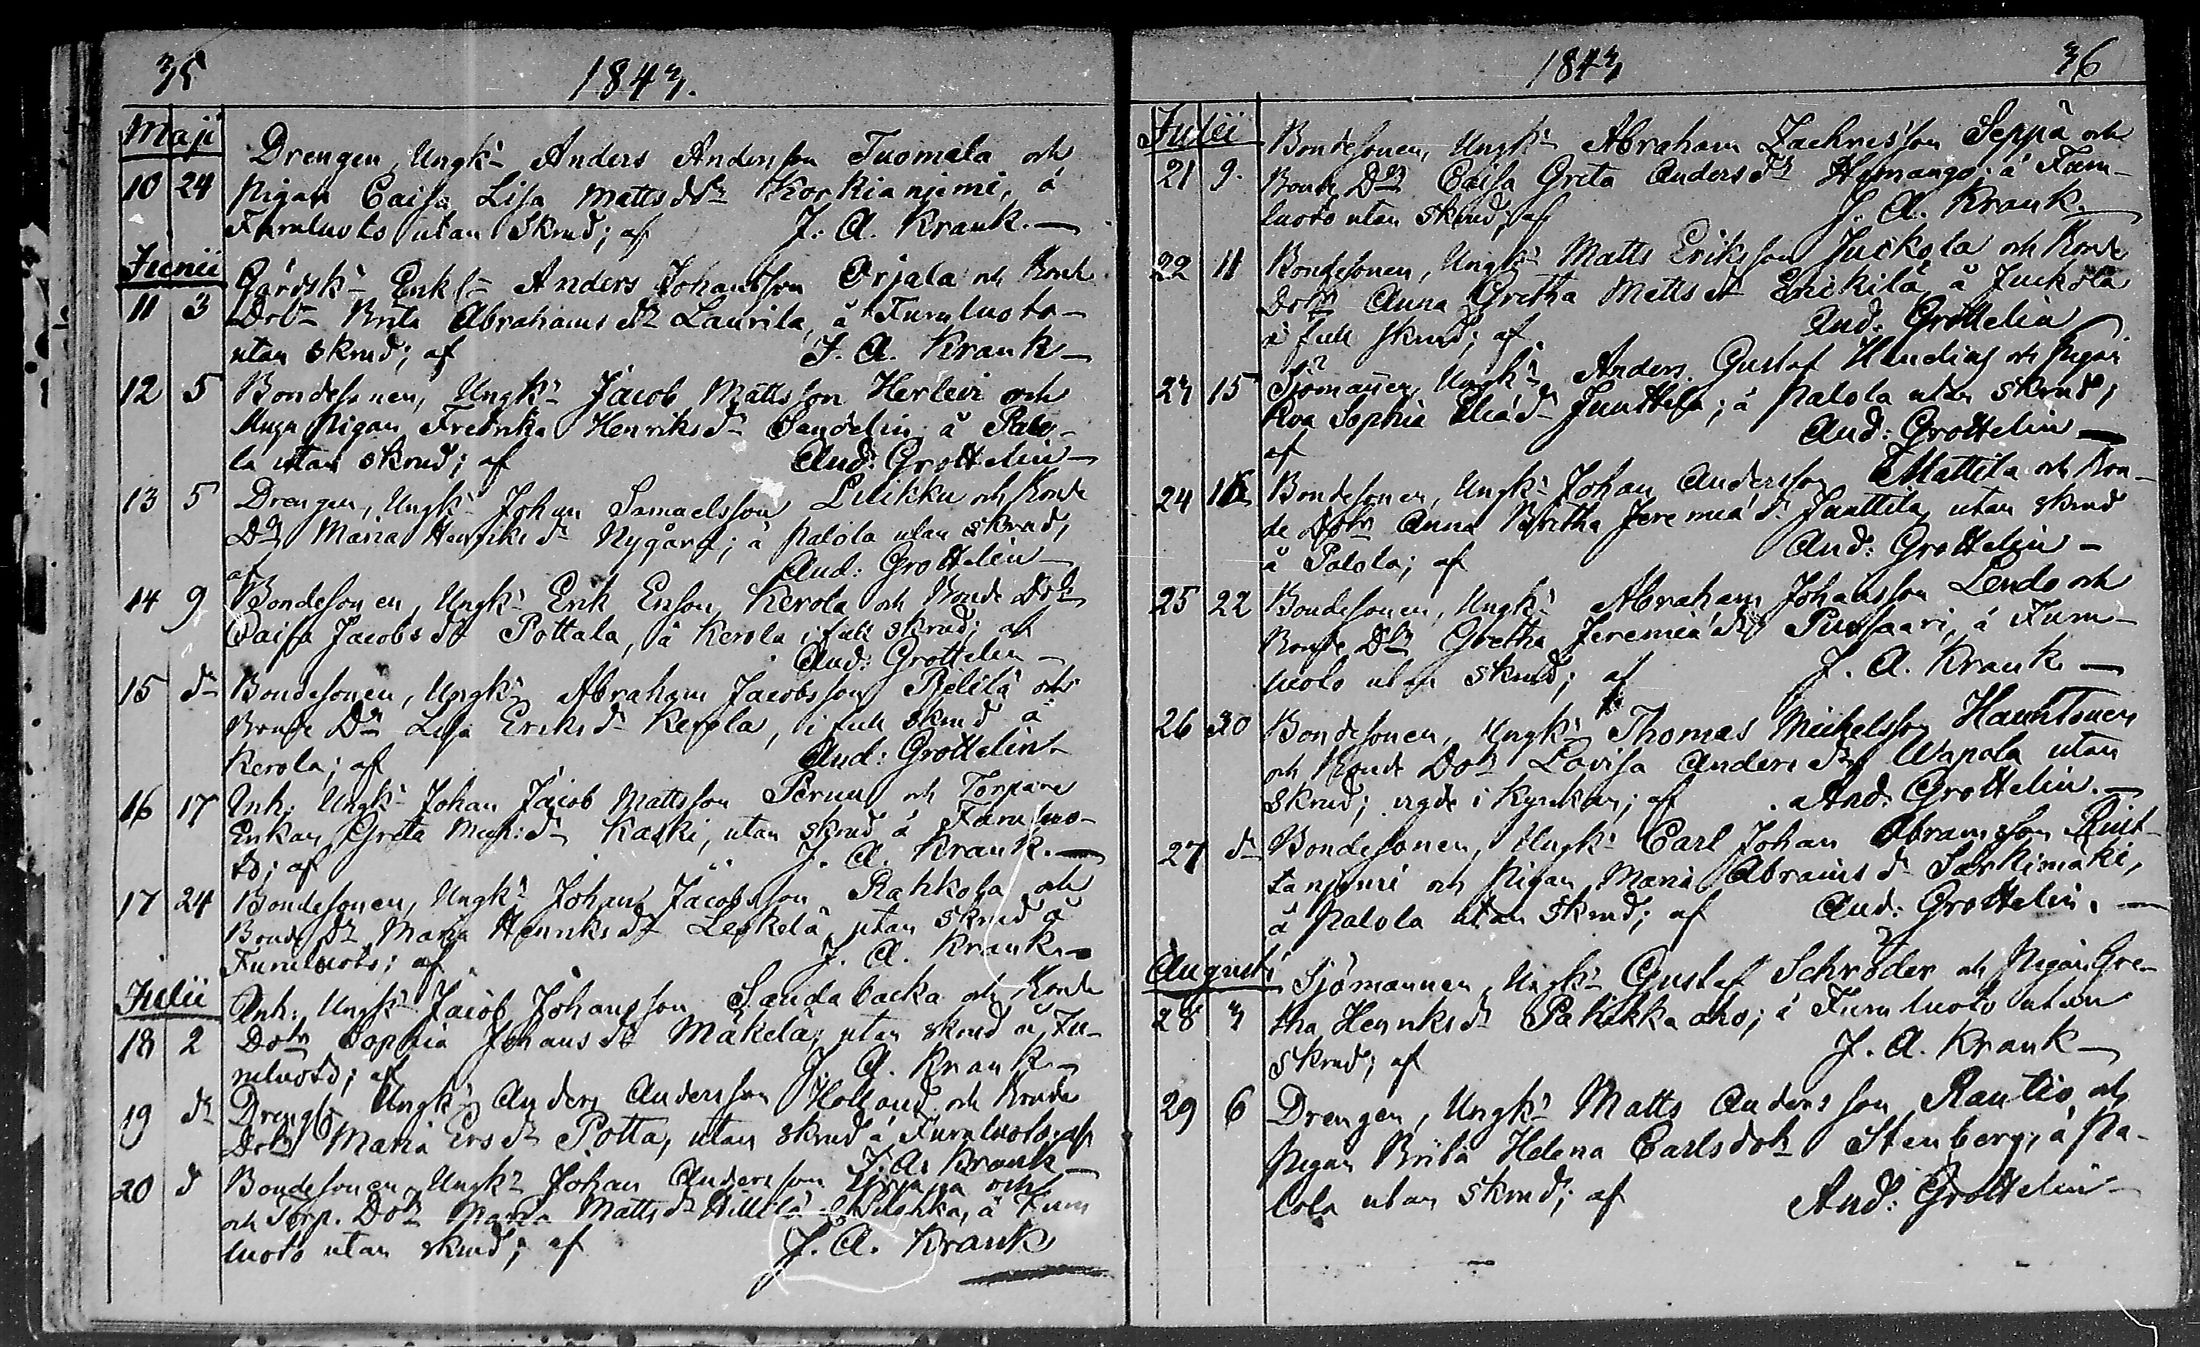 35
1843.
Maji
Drengen, Ungk:n Anders Andersson Tuomala och
10 24 Pigan Caisa Lisa Matts dr Korkianjemi, å
Furuluoto utan skrud; af J. A. Krank.
Junii
Gårdsk:n Enkl:n Anders Johansson Orjala och Bonde
11 3 Dotr Brita Abrahams dr Laurila, å Furuluoto
utan skrud; af J. A. Krank
12 5 Bondesonen, Ungk:n Jacob Mattsson Herlevi och
Pigan Fredrika Henriks dr Sandelin å Palo-
la utan skrud; af And: Grottelin
13 5 Drengen, Ungk:n Johan Samuelsson Luikku och Bonde
Dr Maria Henriks dr Nygård; å Palola utan skrud,
af And: Grottelin
14 9 Bondesonen, Ungk:n Erik Erson Kerola och Bonde Dotr
Caisa Jacobs dr Pottala, å Kerola i full skrud; af
And: Grottelin
15 d:n Bondesonen, Ungk:n Abraham Jacobsson Pjelilä och
Bonde Dr Lisa Eriks dr Kerola, i full skrud å
Kerola; af And: Grottelin
16 17 Inh: Ungk:n Johan Jacob Mattsson Peruu och Torpare
Enkan Greta Mich: dr Kaski, utan skrud å Furuluo-
to; af J. A. Krank.
17 24 Bondesonen, Ungk:n Johan Jacobsson Rahkola och
Bonde Dr Maria Henriks dr Leskelä, utan skrud å
Furuluoto; af J. A. Krank
Julii
Inh: Ungk:n Jacob Johansson Sandabacka och Bonde
18 2 Dotr Sophia Johans dr Mäkelä, utan skrud å Fu-
ruluoto; af J. A. Krank
19 d:n Dreng Ungk:n Anders Andersson Holland och Bonde
Dotr Maria Ers dr Potta, utan skrud å Furuluoto; af
J. A. Krank
20 d Bondesonen, Ungk:n Johan Andersson och
och Torp. Dotr Maria Matts dr Hillilä å Furu
luoto utan skrud; af J. A. Krank
1843
36
Julii
Bondesonen, Ungk:n Abraham Zachrisson Seppä och
21 9. Bonde Dotr Caisa Greta Anders dr Hymango; å Furu-
luoto utan skrud; af J. A. Krank.
22 11 Bondesonen, Ungk:n Matts Eriksson Juckola och Bonde
Dotr Anna Gretha Matts dr Erickilä, å Juckola
i full skrud; af And: Grottelin
23 15 Sjömannen, Ungk:n Anders Gustaf Handing och Pigan
Eva Sophia Eliæ dr Junttila; å Palola utan skrud;
af And: Grottelin
24 16 Bondesonen, Ungk:n Johan Andersson Mattila och Bon-
de Dotr Anna Britha Jeremiæ dr Junttila, utan skrud
å Palola; af And: Grottelin
25 22 Bondesonen, Ungk:n Abraham Johansson Lendo och
Bonde Dotr Gretha Jeremiæ dr Pussaari, å Furu-
luoto utan skrud; af J. A. Krank
26 30 Bondesonen, Ungk:n Thomas Michelsson Hauntonen
och Bonde Dotr Lovisa Anders dr Wapola utan
skrud; vigde i Kyrckan; af And: Grottelin.
27 d:n Bondesonen, Ungk:n Carl Johan Abramsson Rint-
tanjemi och Pigan Maria Abrams dr Särkimäki,
å Palola utan skrud; af And: Grottelin.
Augusti
Sjömannen, Ungk:n Gustaf Schröder och Pigan Gre-
28 3 tha Henriks dr Pakikka aho; å Furuluoto utan
skrud; af J. A. Krank
29 6 Drengen, Ungk:n Matts Andersson Rautio och
Pigan Brita Helena Carlsdotr Stenberg; å Pa-
lola utan skrud; af And: Grottelin